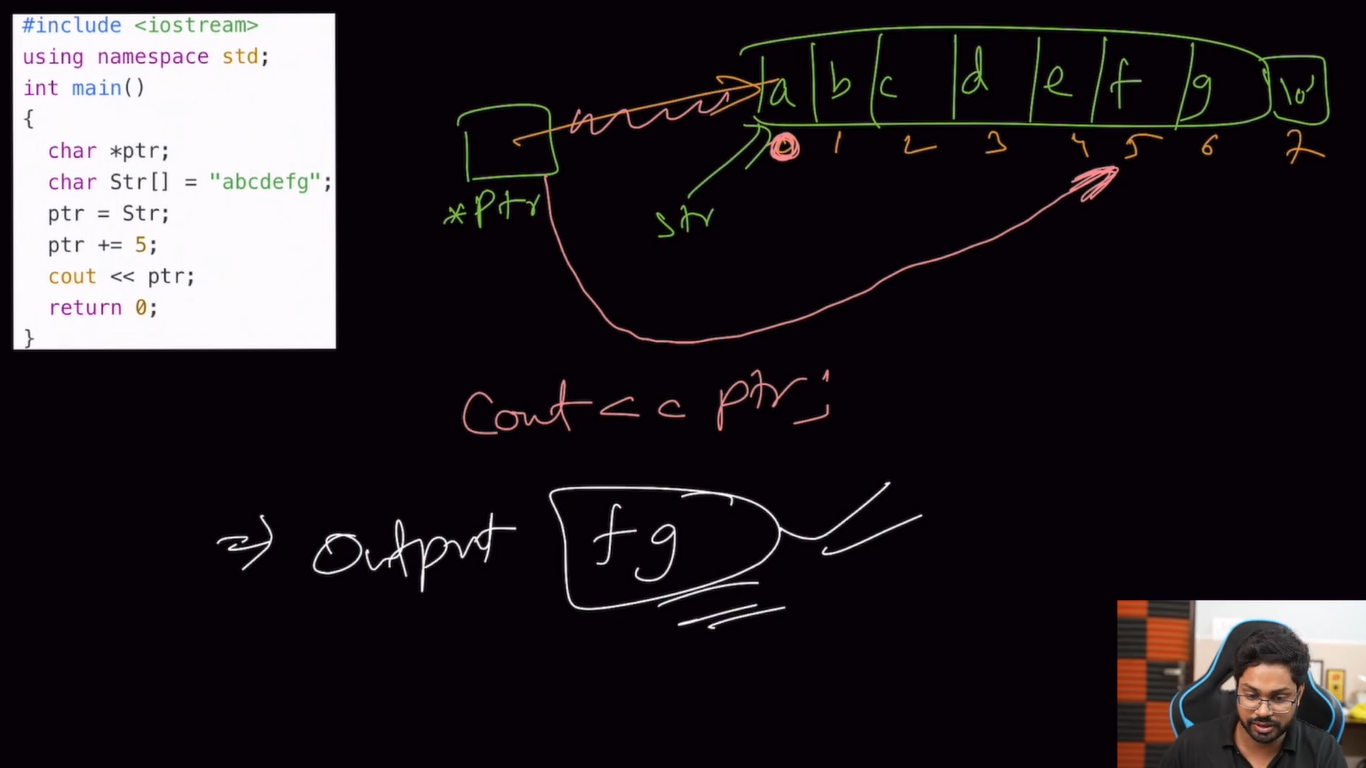 #include <iostream>
using namespace std;
int main()
{
char *ptr;
char Str[] = "abcdefg";
ptr = Str;
ptr += 5;
cout << ptr;
return 0;
}
a b c d e f g \0
0 1 2 3 4 5 6 7
*Ptr
str
Cout << ptr;
=> Output fg